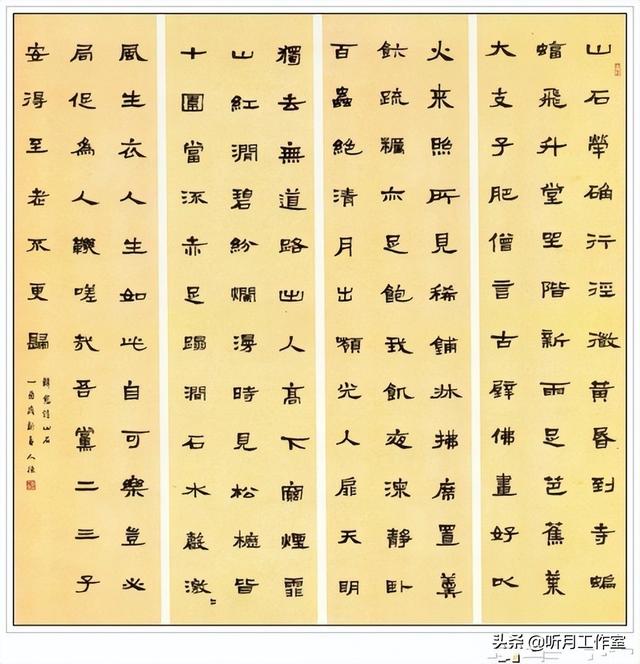 山石犖确行徑微黃昏到寺蝙
蝠飛升堂坐階新雨足芭蕉葉
大支子肥僧言古壁佛畫好以
火來照所見稀鋪牀拂席置羹
飯疏糲亦足飽我飢夜深靜臥
百蟲絕清月出嶺光入扉天明
獨去無道路出入高下窮煙霏
山紅澗碧紛爛漫時見松櫪皆
十圍當流赤足蹋澗石水聲激〻
風生衣人生如此自可樂豈必
局促為人鞿嗟哉吾黨二三子
安得至老不更歸
韓愈詩山石
头条 @听月工作室